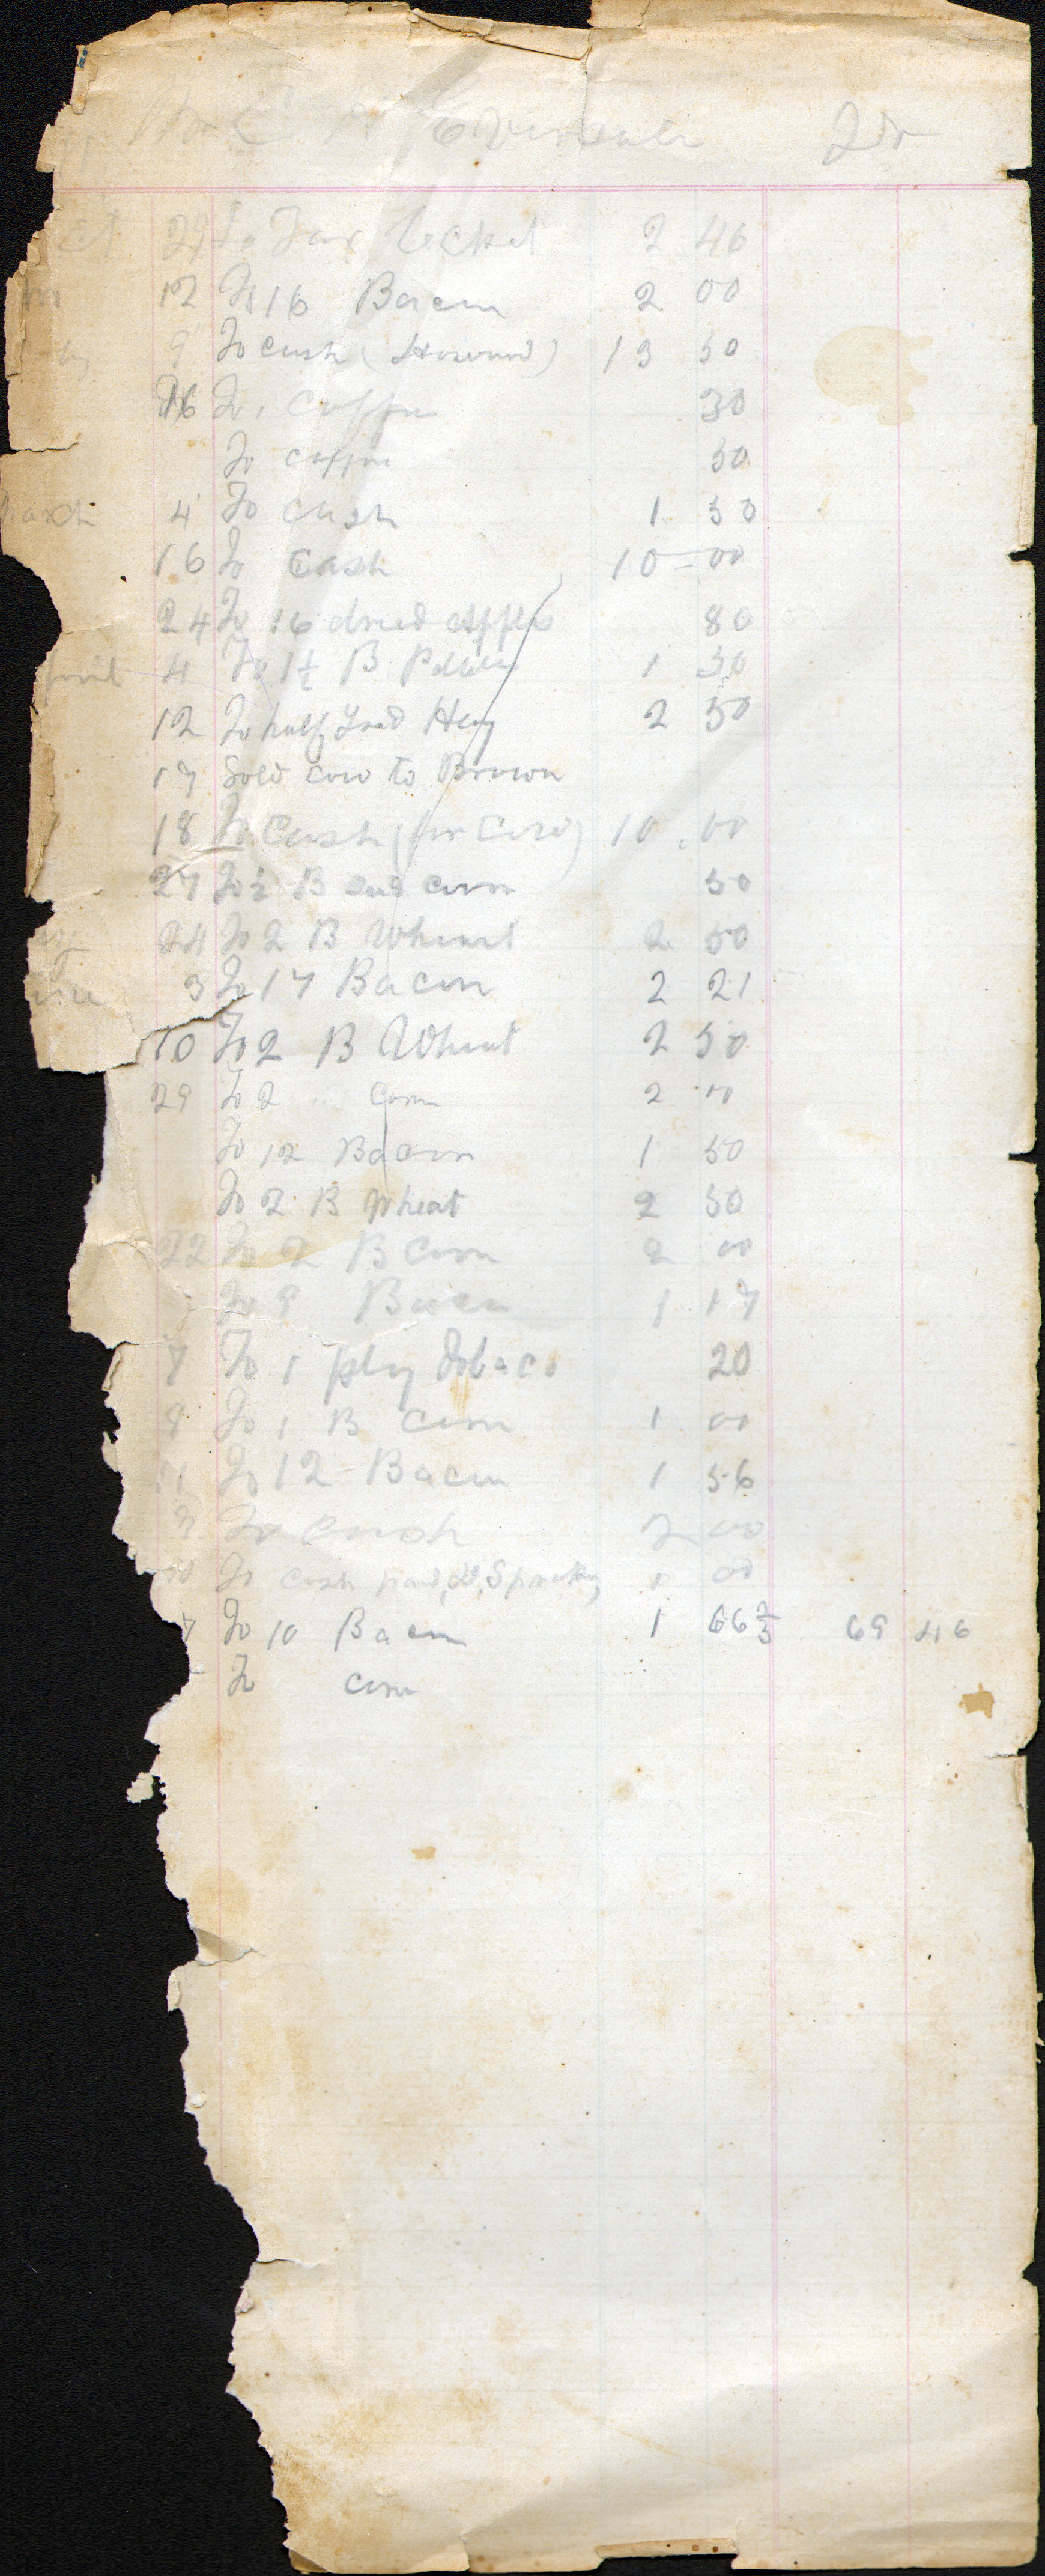 Dr
ct 29 To Tax 2 46
12 To 16 Bacon 2 00
9 To cash ( ) 13 50
16 To coffee 30
To coffee 50
March 4 To cash 1 50
16 To Cash 10 00
24 To 16 dried apples 80
pril 4 To 1½ B 1 50
12 To half Load Hay 2 50
17 Sold cow to Brown
18 To Cash (for Cow) 10.00
27 To ½ B seed corn 50
ay 24 To 2 B Wheat 2 50
une 3 To 17 Bacon 2 21
10 To 2 B Wheat 2 50
29 To 2 " Corn 2 00
To 12 Bacon 1 50
To 2 B Wheat 2 50
22 To 2 B Corn 2 00
To 9 Bacon 1 17
7 To 1 plug Tobaco 20
8 To 1 B Corn 1 00
11 To 12 Bacon 1 56
9 To Cash 2 00
To Cash paid, 1 00
7 To 10 Bacon 1 66⅔ 69 46
To Corn